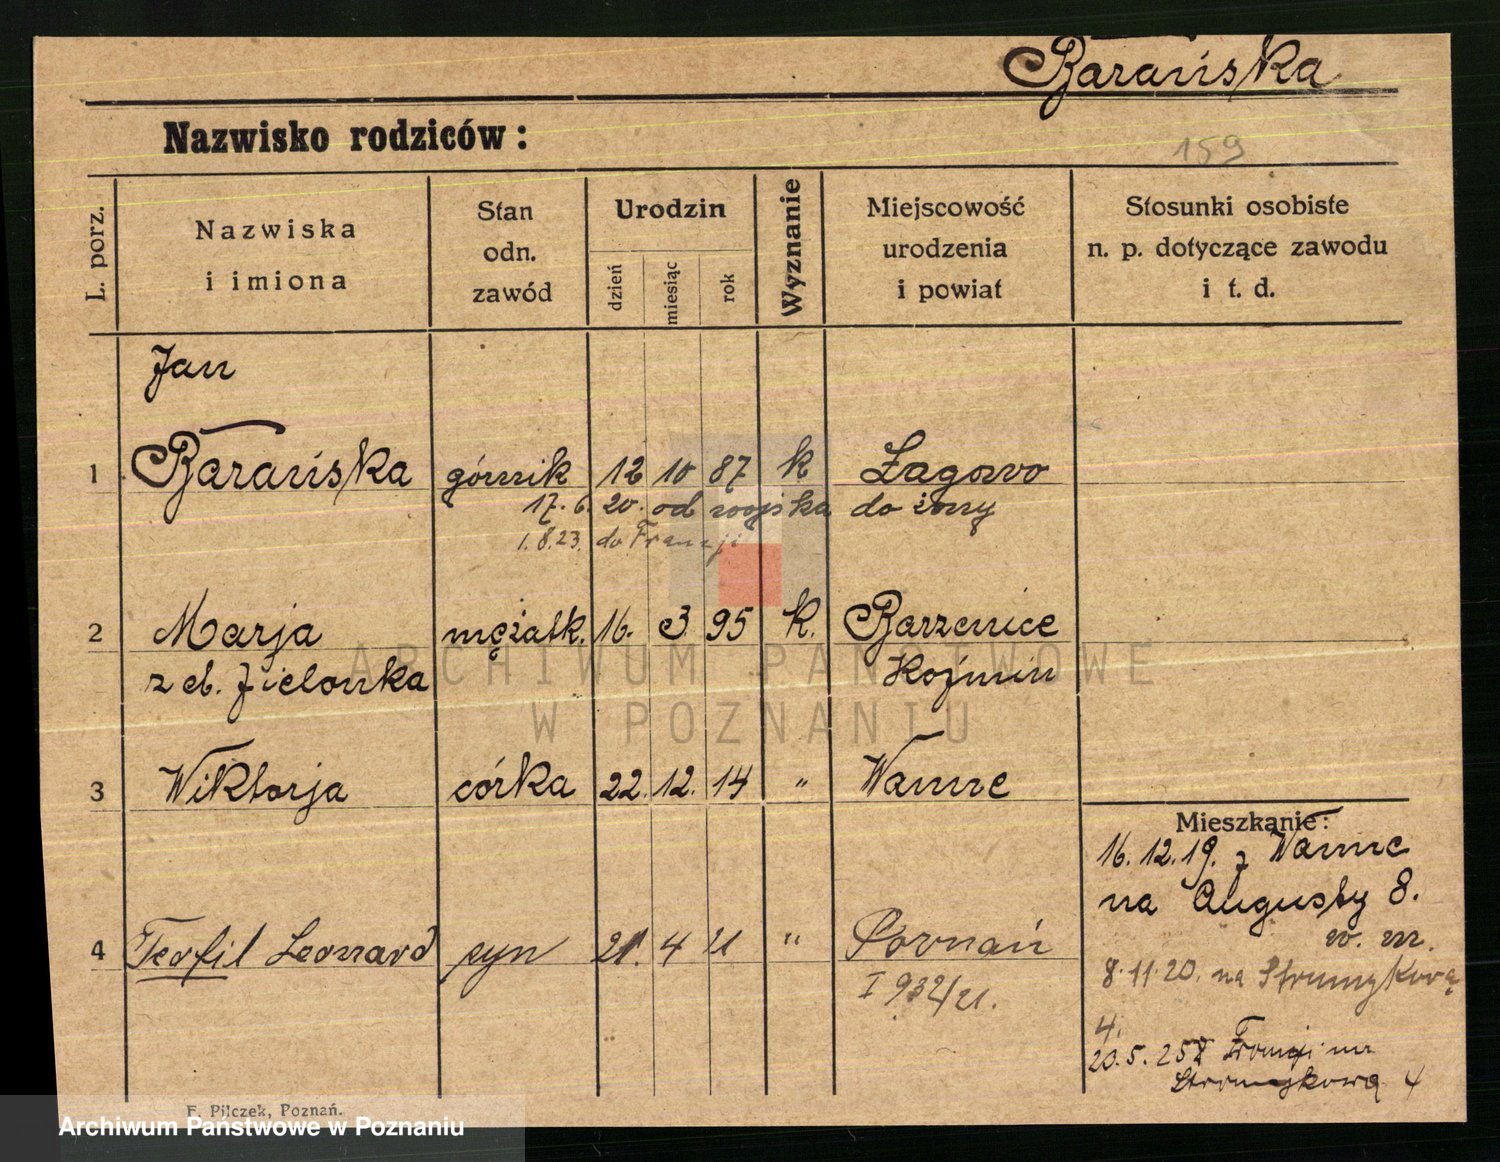 Barańska
Nazwisko rodziców:
159
L. porz.
Nazwiska
i imiona
Stan
odn.
zawód
Urodzin
dzień
miesiąc
rok
Wyznanie
Miejscowość
urodzenia
i powiat
Stosunki osobiste
n. p. dotyczące zawodu
i t. d.
Jan
1 Barańska górnik 12 10 87 k Łagowo
17. 6. 20. od wojska do żony
1. 8. 23. do Francji
2 Marja mężatk. 16. 3 95 k. Borzenice
z ch. Zielonka Koźmin
3 Wiktorja córka 22. 12. 14 " Wanne
Mieszkanie:
16. 12. 19. z Wanne
na Augusty 8.
w. m.
4 Teofil Leonard syn 21. 4 21 " Poznań
I 932/21.
8. 11. 20. na Strumykową
4.
20. 5. 25 z Francji na
Strumykową 4
F. Pilczek, Poznań.
ARCHIWUM PAŃSTWOWE
W POZNANIU
Archiwum Państwowe w Poznaniu